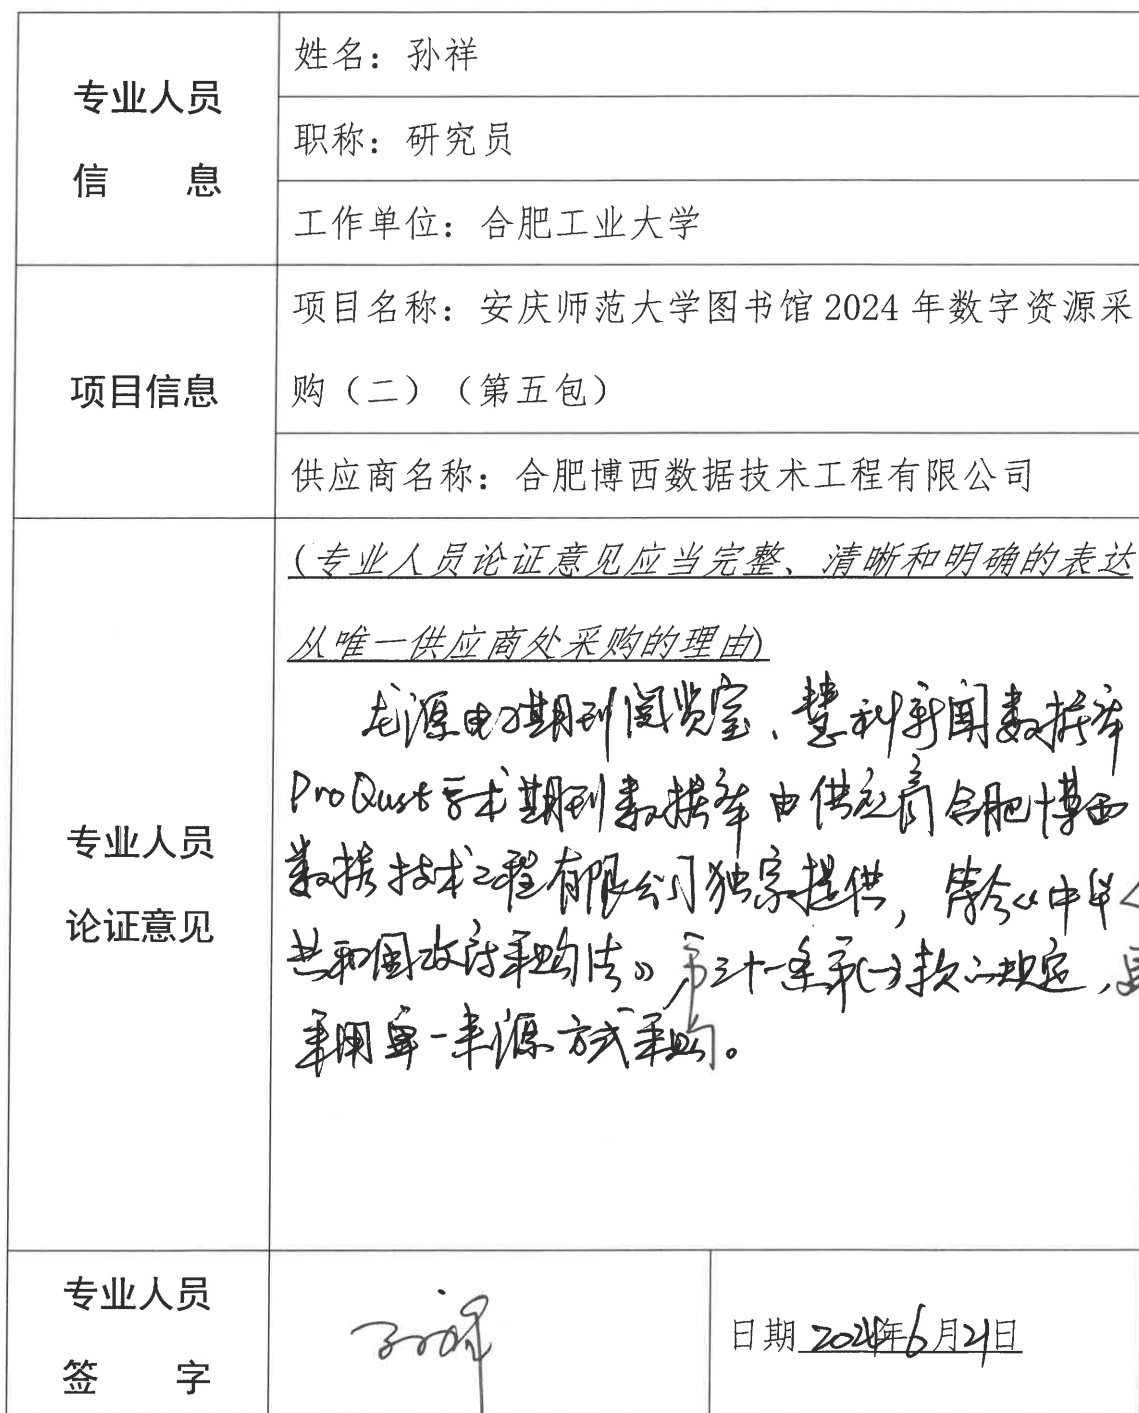 专业人员
信 息
姓名：孙祥
职称：研究员
工作单位：合肥工业大学
项目信息
项目名称：安庆师范大学图书馆 2024 年数字资源采
购（二）（第五包）
供应商名称：合肥博西数据技术工程有限公司
专业人员
论证意见
(专业人员论证意见应当完整、清晰和明确的表达
从唯一供应商处采购的理由)
龙源电子期刊阅览室、慧科新闻数据库
ProQust学术期刊数据库由供应商合肥博西
数据技术工程有限公司独家提供，符合《中华
共和国政府采购法》第三十一条第(一)款的规定，
采用单一来源方式采购。
专业人员
签 字
孙祥
日期 2024年6月21日